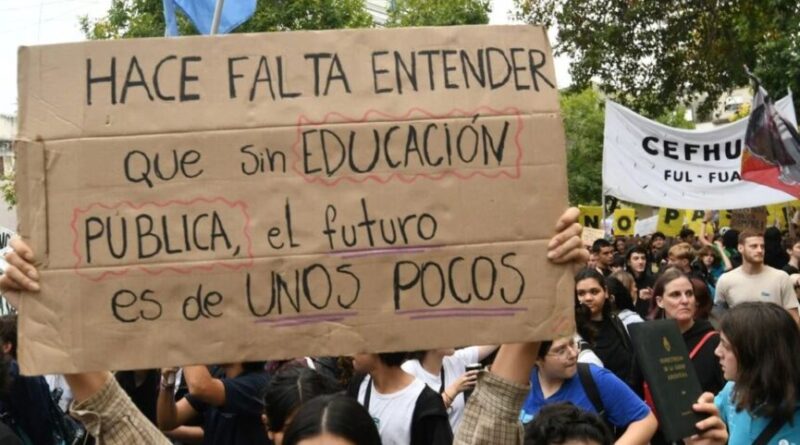 HACE FALTA ENTENDER
que sin EDUCACIÓN
PÚBLICA, el futuro
es de UNOS POCOS
CEFHU
FUL - FUA
NO PA